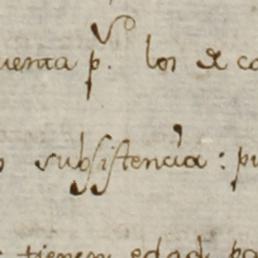 uenta p.º los
subsistencia: pu
tienen edad pa